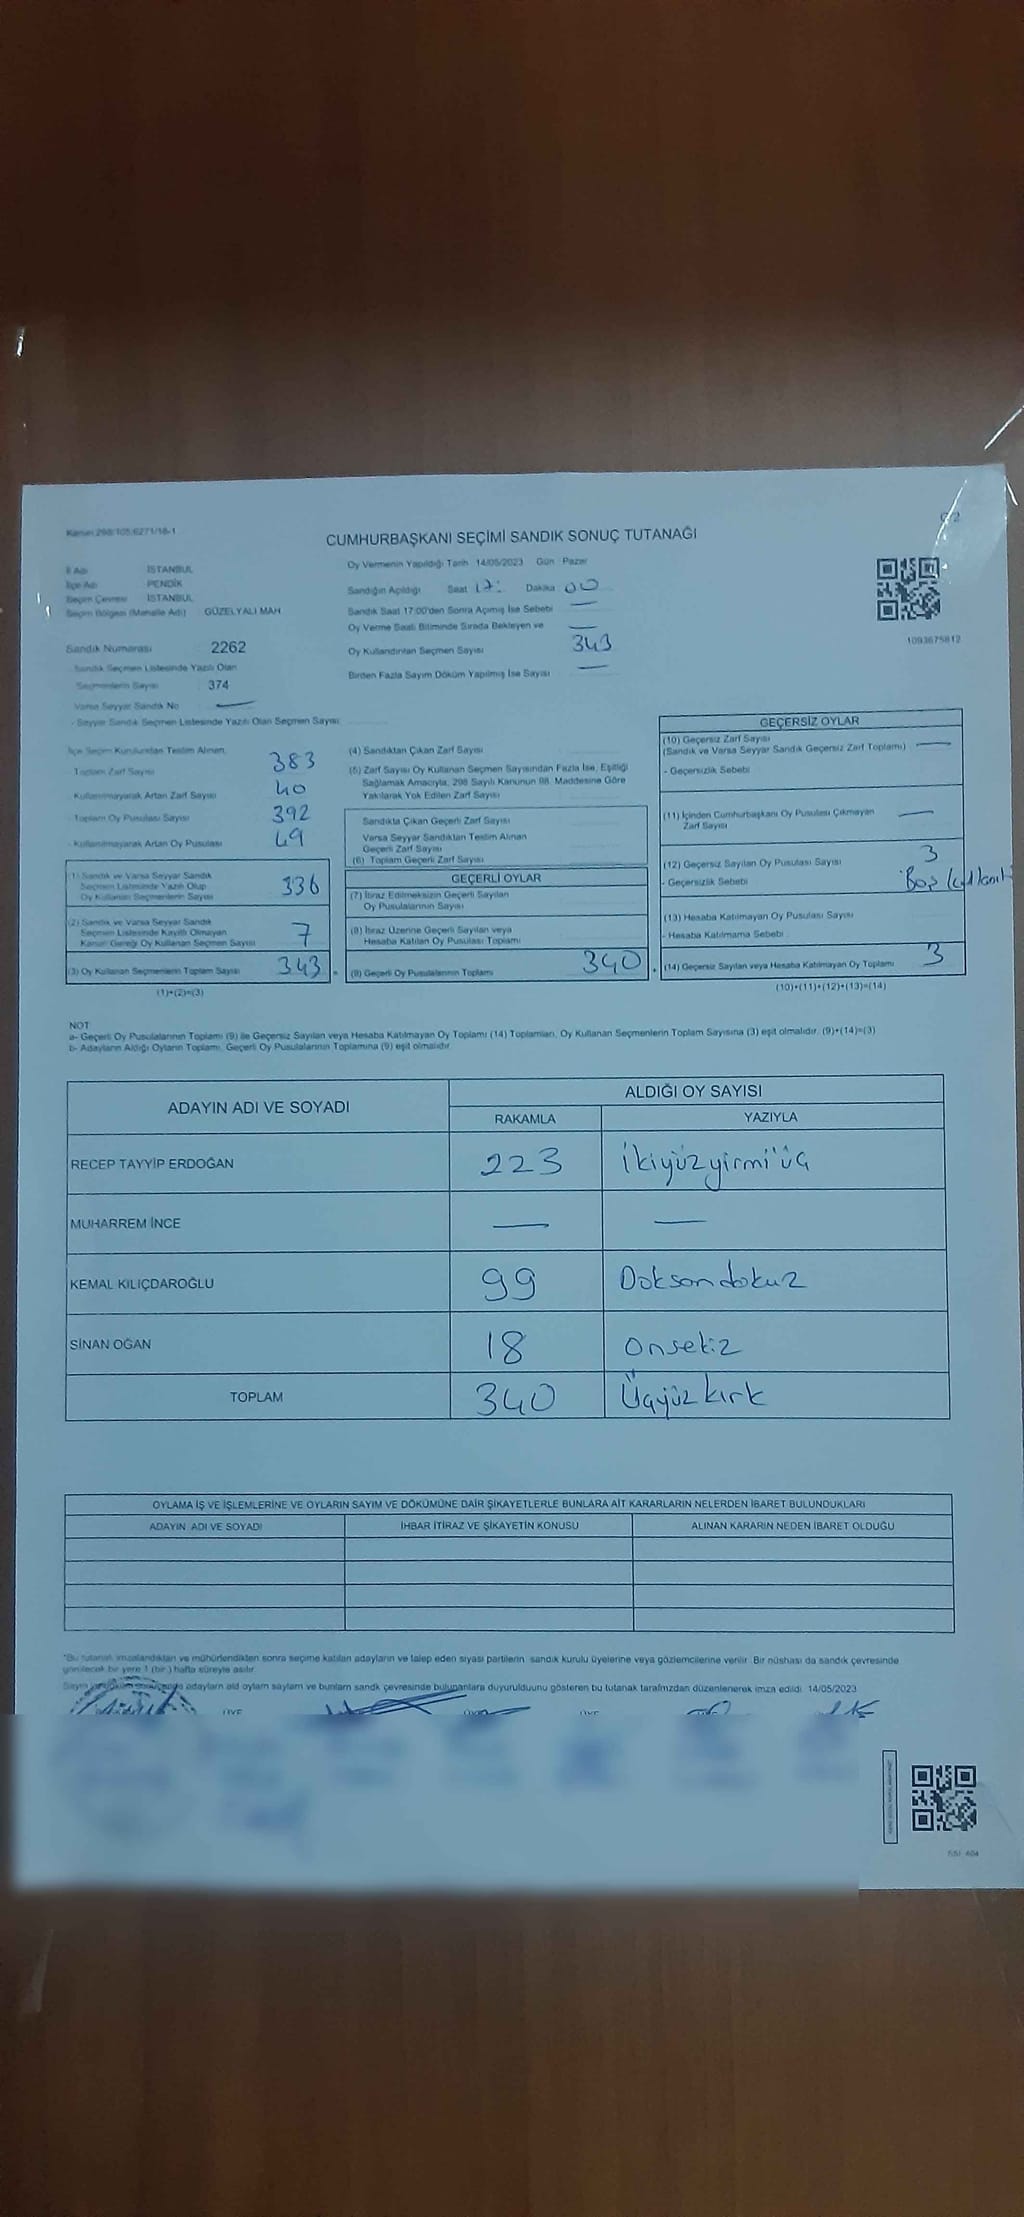 Kanun:298/105;6271/18-1
G 2
CUMHURBAŞKANI SEÇİMİ SANDIK SONUÇ TUTANAĞI
İl Adı İSTANBUL
İlçe Adı PENDİK
Seçim Çevresi İSTANBUL
Seçim Bölgesi (Mahalle Adı) GÜZELYALI MAH
Sandık Numarası 2262
Sandık Seçmen Listesinde Yazılı Olan
Seçmenlerin Sayısı 374
Varsa Seyyar Sandık No —
- Seyyar Sandık Seçmen Listesinde Yazılı Olan Seçmen Sayısı
Oy Vermenin Yapıldığı Tarih 14/05/2023 Gün Pazar
Sandığın Açıldığı Saat 17: Dakika 00
Sandık Saat 17:00'den Sonra Açılmış İse Sebebi —
Oy Verme Saati Bitiminde Sırada Bekleyen ve —
Oy Kullandırılan Seçmen Sayısı 343
Birden Fazla Sayım Döküm Yapılmış İse Sayısı —
1093675812
İlçe Seçim Kurulundan Teslim Alınan
Toplam Zarf Sayısı 383
- Kullanılmayarak Artan Zarf Sayısı 40
- Toplam Oy Pusulası Sayısı 392
- Kullanılmayarak Artan Oy Pusulası 49
(1) Sandık ve Varsa Seyyar Sandık
Seçmen Listesinde Yazılı Olup
Oy Kullanan Seçmenlerin Sayısı 336
(2) Sandık ve Varsa Seyyar Sandık
Seçmen Listesinde Kayıtlı Olmayan
Kanun Gereği Oy Kullanan Seçmen Sayısı 7
(3) Oy Kullanan Seçmenlerin Toplam Sayısı 343
(1)+(2)=(3)
(4) Sandıktan Çıkan Zarf Sayısı
(5) Zarf Sayısı Oy Kullanan Seçmen Sayısından Fazla İse, Eşitliği
Sağlamak Amacıyla, 298 Sayılı Kanunun 98. Maddesine Göre
Yakılarak Yok Edilen Zarf Sayısı
Sandıkta Çıkan Geçerli Zarf Sayısı
Varsa Seyyar Sandıktan Teslim Alınan
Geçerli Zarf Sayısı
(6) Toplam Geçerli Zarf Sayısı
GEÇERLİ OYLAR
(7) İtiraz Edilmeksizin Geçerli Sayılan
Oy Pusulalarının Sayısı
(8) İtiraz Üzerine Geçerli Sayılan veya
Hesaba Katılan Oy Pusulası Toplamı
= (9) Geçerli Oy Pusulalarının Toplamı 340
GEÇERSİZ OYLAR
(10) Geçersiz Zarf Sayısı
(Sandık ve Varsa Seyyar Sandık Geçersiz Zarf Toplamı) —
- Geçersizlik Sebebi
(11) İçinden Cumhurbaşkanı Oy Pusulası Çıkmayan
Zarf Sayısı —
(12) Geçersiz Sayılan Oy Pusulası Sayısı 3
- Geçersizlik Sebebi Boş
(13) Hesaba Katılmayan Oy Pusulası Sayısı
- Hesaba Katılmama Sebebi
+ (14) Geçersiz Sayılan veya Hesaba Katılmayan Oy Toplamı 3
(10)+(11)+(12)+(13)=(14)
NOT
a- Geçerli Oy Pusulalarının Toplamı (9) ile Geçersiz Sayılan veya Hesaba Katılmayan Oy Toplamı (14) Toplamları, Oy Kullanan Seçmenlerin Toplam Sayısına (3) eşit olmalıdır. (9)+(14)=(3)
b- Adayların Aldığı Oyların Toplamı, Geçerli Oy Pusulalarının Toplamına (9) eşit olmalıdır.
ADAYIN ADI VE SOYADI ALDIĞI OY SAYISI
RAKAMLA YAZIYLA
RECEP TAYYİP ERDOĞAN 223 İkiyüzyirmi üç
MUHARREM İNCE — —
KEMAL KILIÇDAROĞLU 99 Doksandokuz
SİNAN OĞAN 18 Onsekiz
TOPLAM 340 Üçyüz kırk
OYLAMA İŞ VE İŞLEMLERİNE VE OYLARIN SAYIM VE DÖKÜMÜNE DAİR ŞİKAYETLERLE BUNLARA AİT KARARLARIN NELERDEN İBARET BULUNDUKLARI
ADAYIN ADI VE SOYADI İHBAR İTİRAZ VE ŞİKAYETİN KONUSU ALINAN KARARIN NEDEN İBARET OLDUĞU
"Bu tutanak imzalandıktan ve mühürlendikten sonra seçime katılan adayların ve talep eden siyasi partilerin sandık kurulu üyelerine veya gözlemcilerine verilir. Bir nüshası da sandık çevresinde
görülecek bir yere 1 (bir ) hafta süreyle asılır.
adayların ald oyların sayların ve bunların sandk çevresinde bulunanlara duyurulduunu gösteren bu tutanak tarafmzdan düzenlenerek imza edildi. 14/05/2023